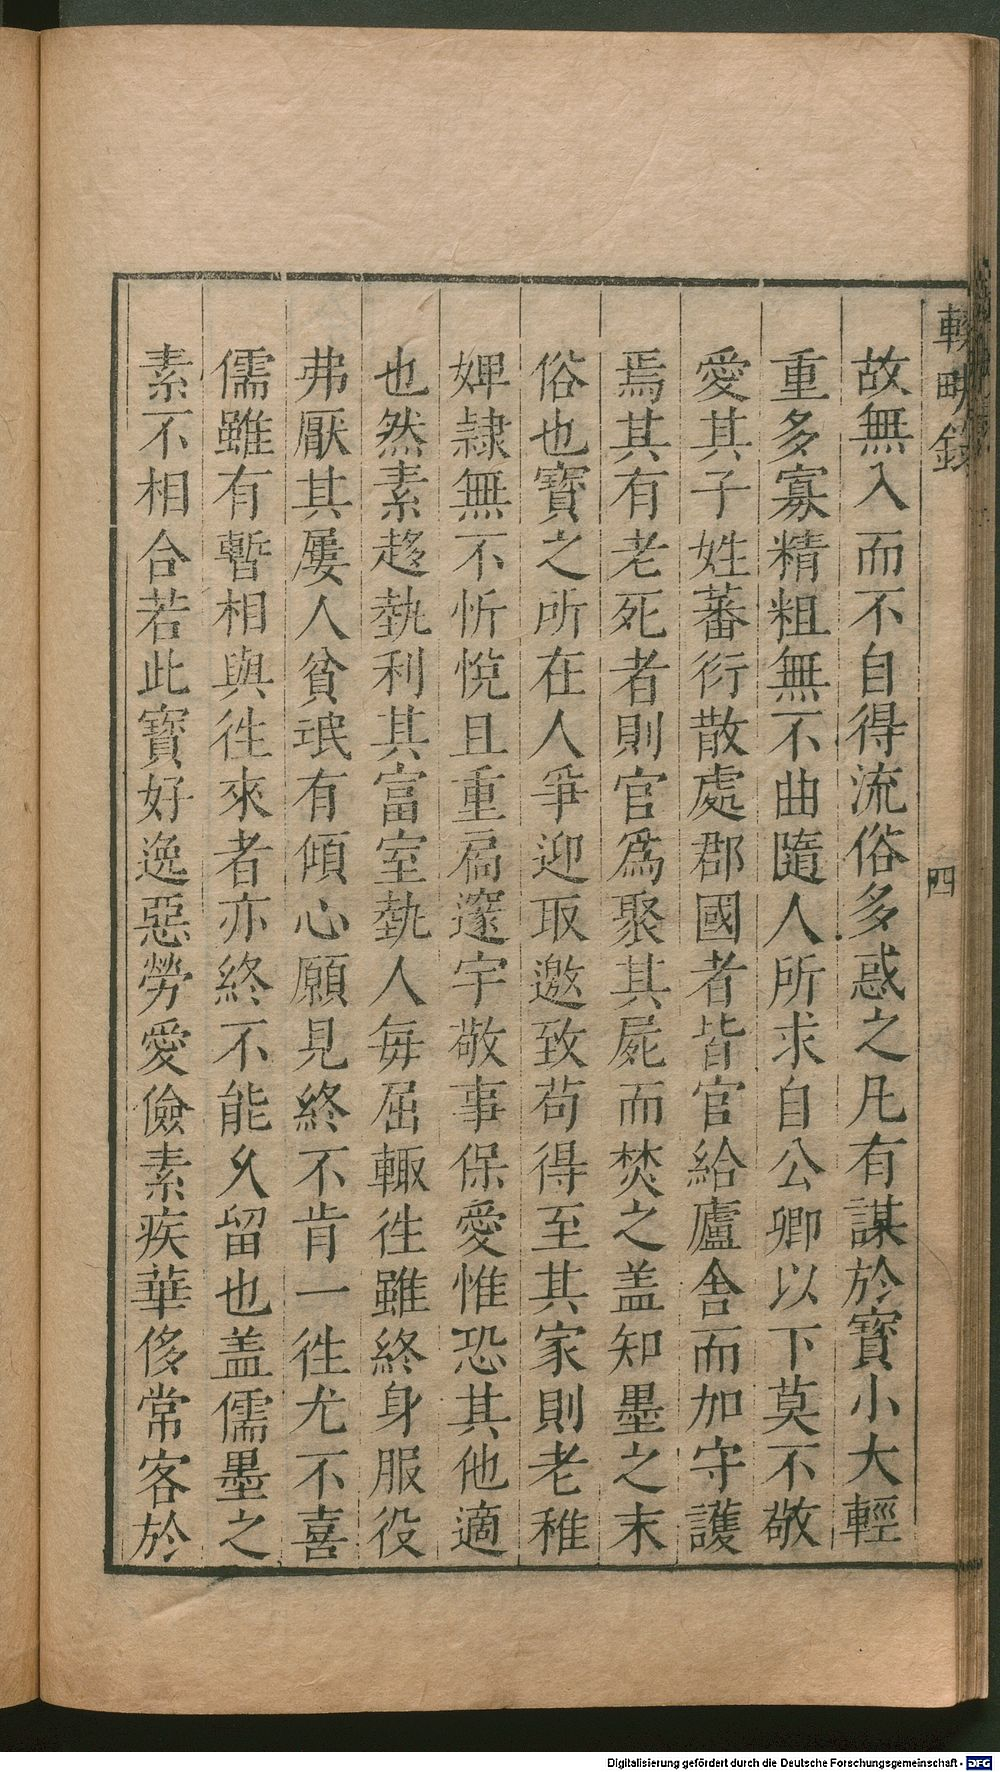 輟畊錄
四
故無入而不自得流俗多惑之凡有謀於寳小大輕
重多寡精粗無不曲隨人所求自公卿以下莫不敬
愛其子姓蕃衍散處郡國者皆官給廬舎而加守護
焉其有老死者則官爲聚其屍而焚之盖知墨之末
俗也寳之所在人爭迎取邀致苟得至其家則老稚
婢隷無不忻悅且重扃邃宇敬事保愛惟恐其他適
也然素趍埶利其富室埶人每屈輙徃雖終身服役
弗厭其屢人貧珉有傾心願見終不肯一徃尤不喜
儒雖有暫相與徃來者亦終不能久留也盖儒墨之
素不相合若此寳好逸惡勞愛儉素疾華侈常客於
Digitalisierung gefördert durch die Deutsche Forschungsgemeinschaft - DFG